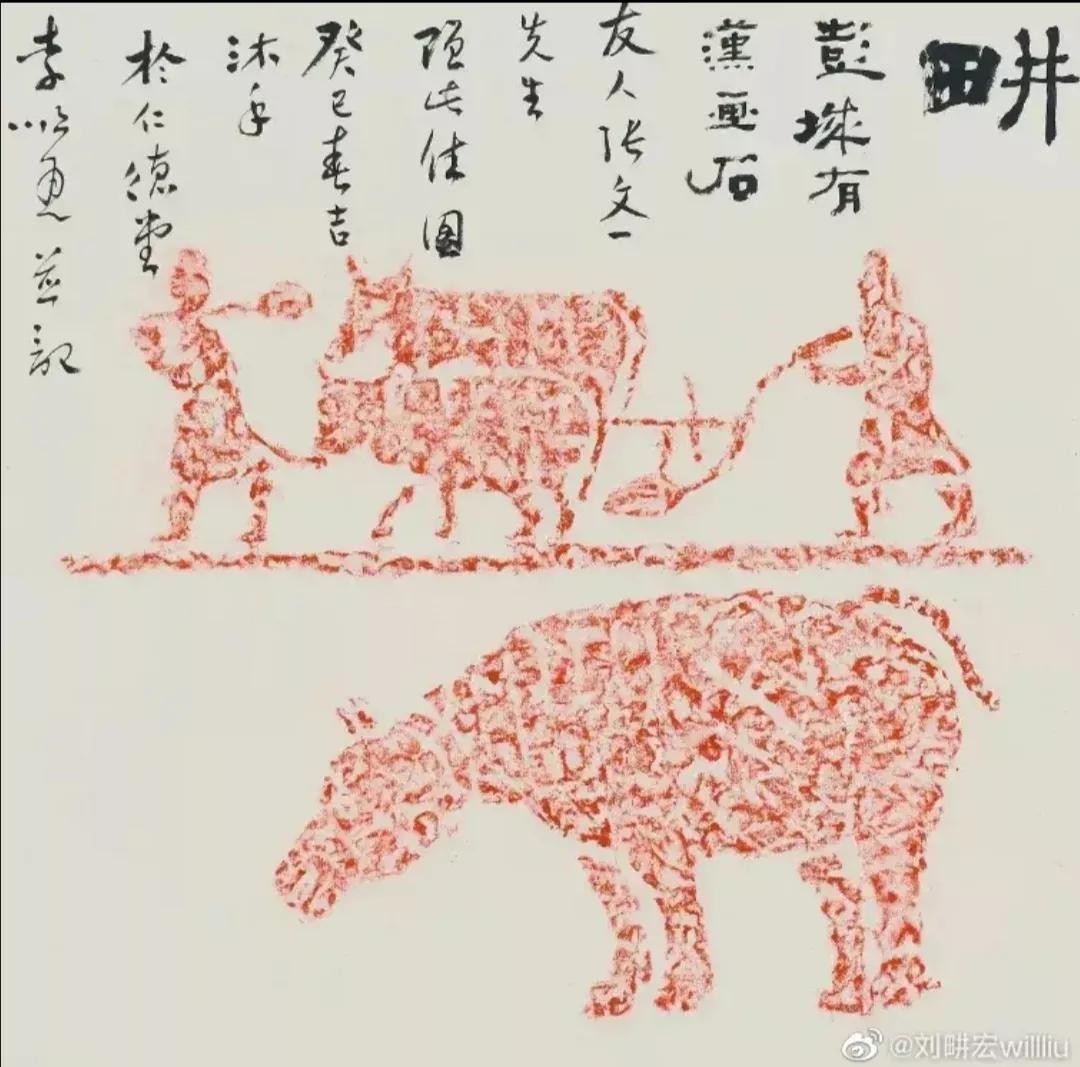 畊
彭城有
漢画石
友人张文一
先生
此佳圖
癸巳春吉
沐手
於仁德堂
李 並記
@刘畊宏willliu